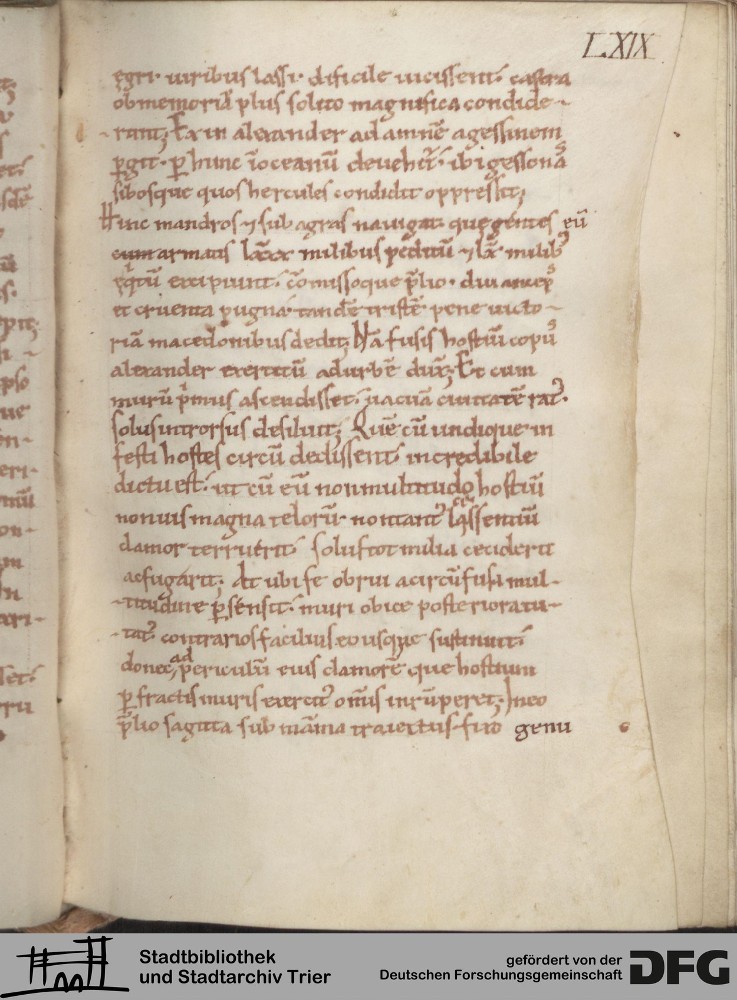 LXIX
ęgri· uiribus lassi· dificile uicissent· castra
ob memoriā plus solito magnifica condide-
-rant; Ex in alexander ad amnē agessinem
pgit· p hunc ī oceanū deuehit̄· ibi gessonas
sibosque quos hercules condidit oppressit;
Hinc mandros ⁊ subagras nauigat· quę gentes eū
cum armatis lxxx milibus peditū ⁊ lx milib;
eq̇tū excipiunt· cōmissoque p̄lio· diu anceps
et cruenta pugna· tandē tristē pene uicto-
riā macedonibus dedit; Nā fusis hostiū copiis
alexander exercitū ad urbē dux; Et cum
murū p̄mus ascendisset· uacuā ciuitatē rat·
solus introrsus desiluit; Quē cū undique in
festi hostes circū dedissent· incredibile
dictu est· ut cū eū non multitudo hostiū
non uis magna telorū· non tant lassentiū
clamor terruerit· solus tot milia ceciderit
ac fugarit; At ubi se obrui a circūfusa mul-
-titudine p̄sensit· muri obice posteriora tu-
-tat· contrarios facilius eo usque sustinuit·
donec ad periculū eius clamorē que hostium
p fractis muris exercit omīs inrūperet; In eo
p̄lio sagitta sub māma traiectus· fixo genu
Stadtbibliothek
und Stadtarchiv Trier
gefördert von der
Deutschen Forschungsgemeinschaft
DFG